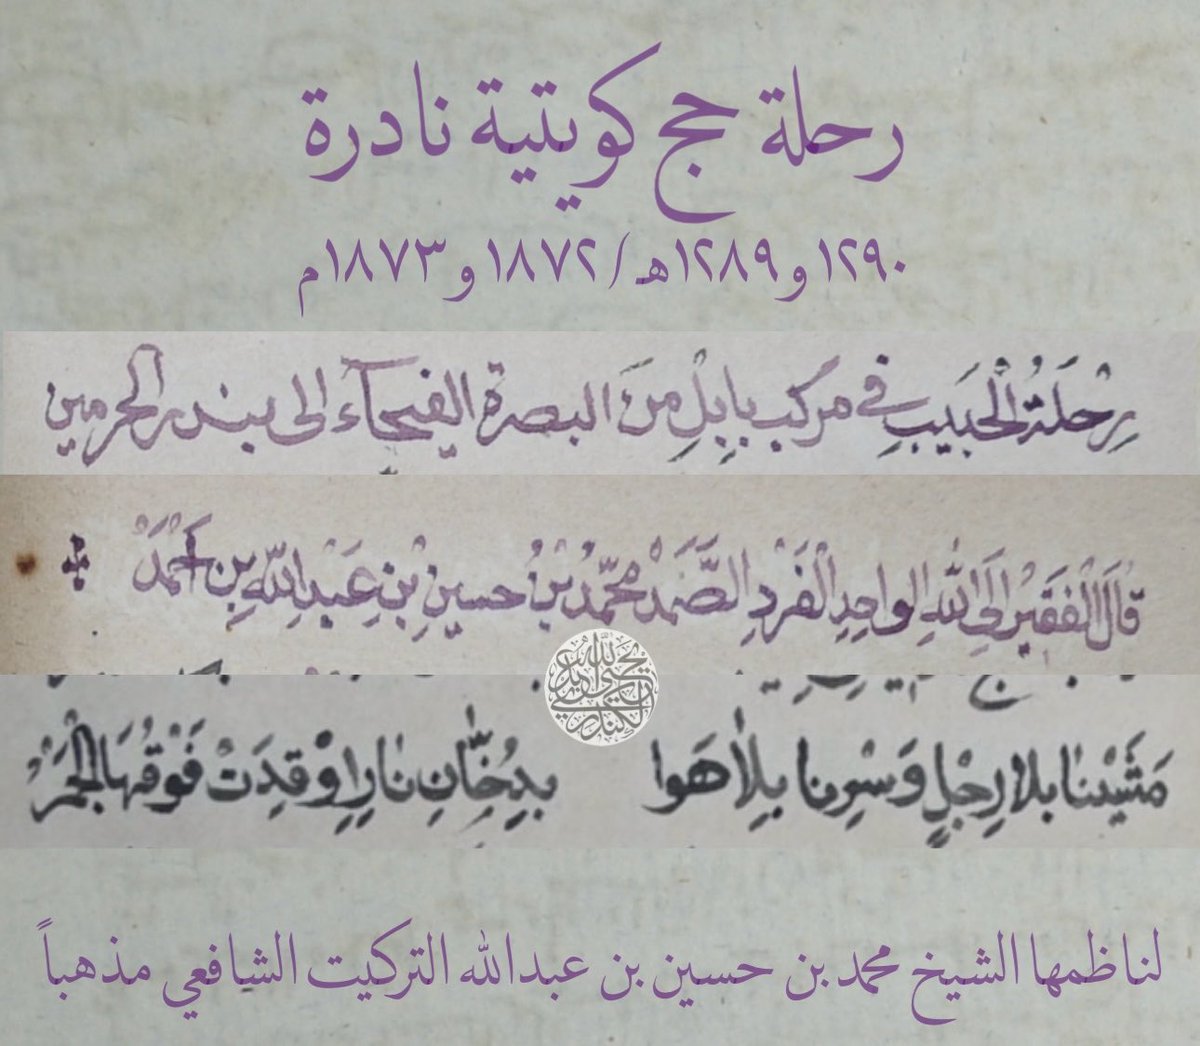 رحلة حج كويتية نادرة
١٢٩٠ و ١٢٨٩هـ / ١٨٧٢ و ١٨٧٣م
رِحْلَةُ الْحَبَيبِ في مركب بابِلِ مِنَ البصرة الفيحآء الى بندر الحرمين
قَالَ الْفَقيْر اِلَى اللّٰهِ الواحِدِ الْفَرْدِ الصَّمَدْ محمّدُ بْنُ حسينِ بْنِ عَبْدِ اللّٰهِ بِن اَحْمَدْ
مَشَيْنَا بلا رِجْلٍ وَسْرِنا بِلاٰ هَوا بدِخَّانِ نارِ اوْقدَتْ فَوْقهَا الْجَمْرُ
لناظمها الشيخ محمد بن حسين بن عبدالله التركيت الشافعي مذهباً